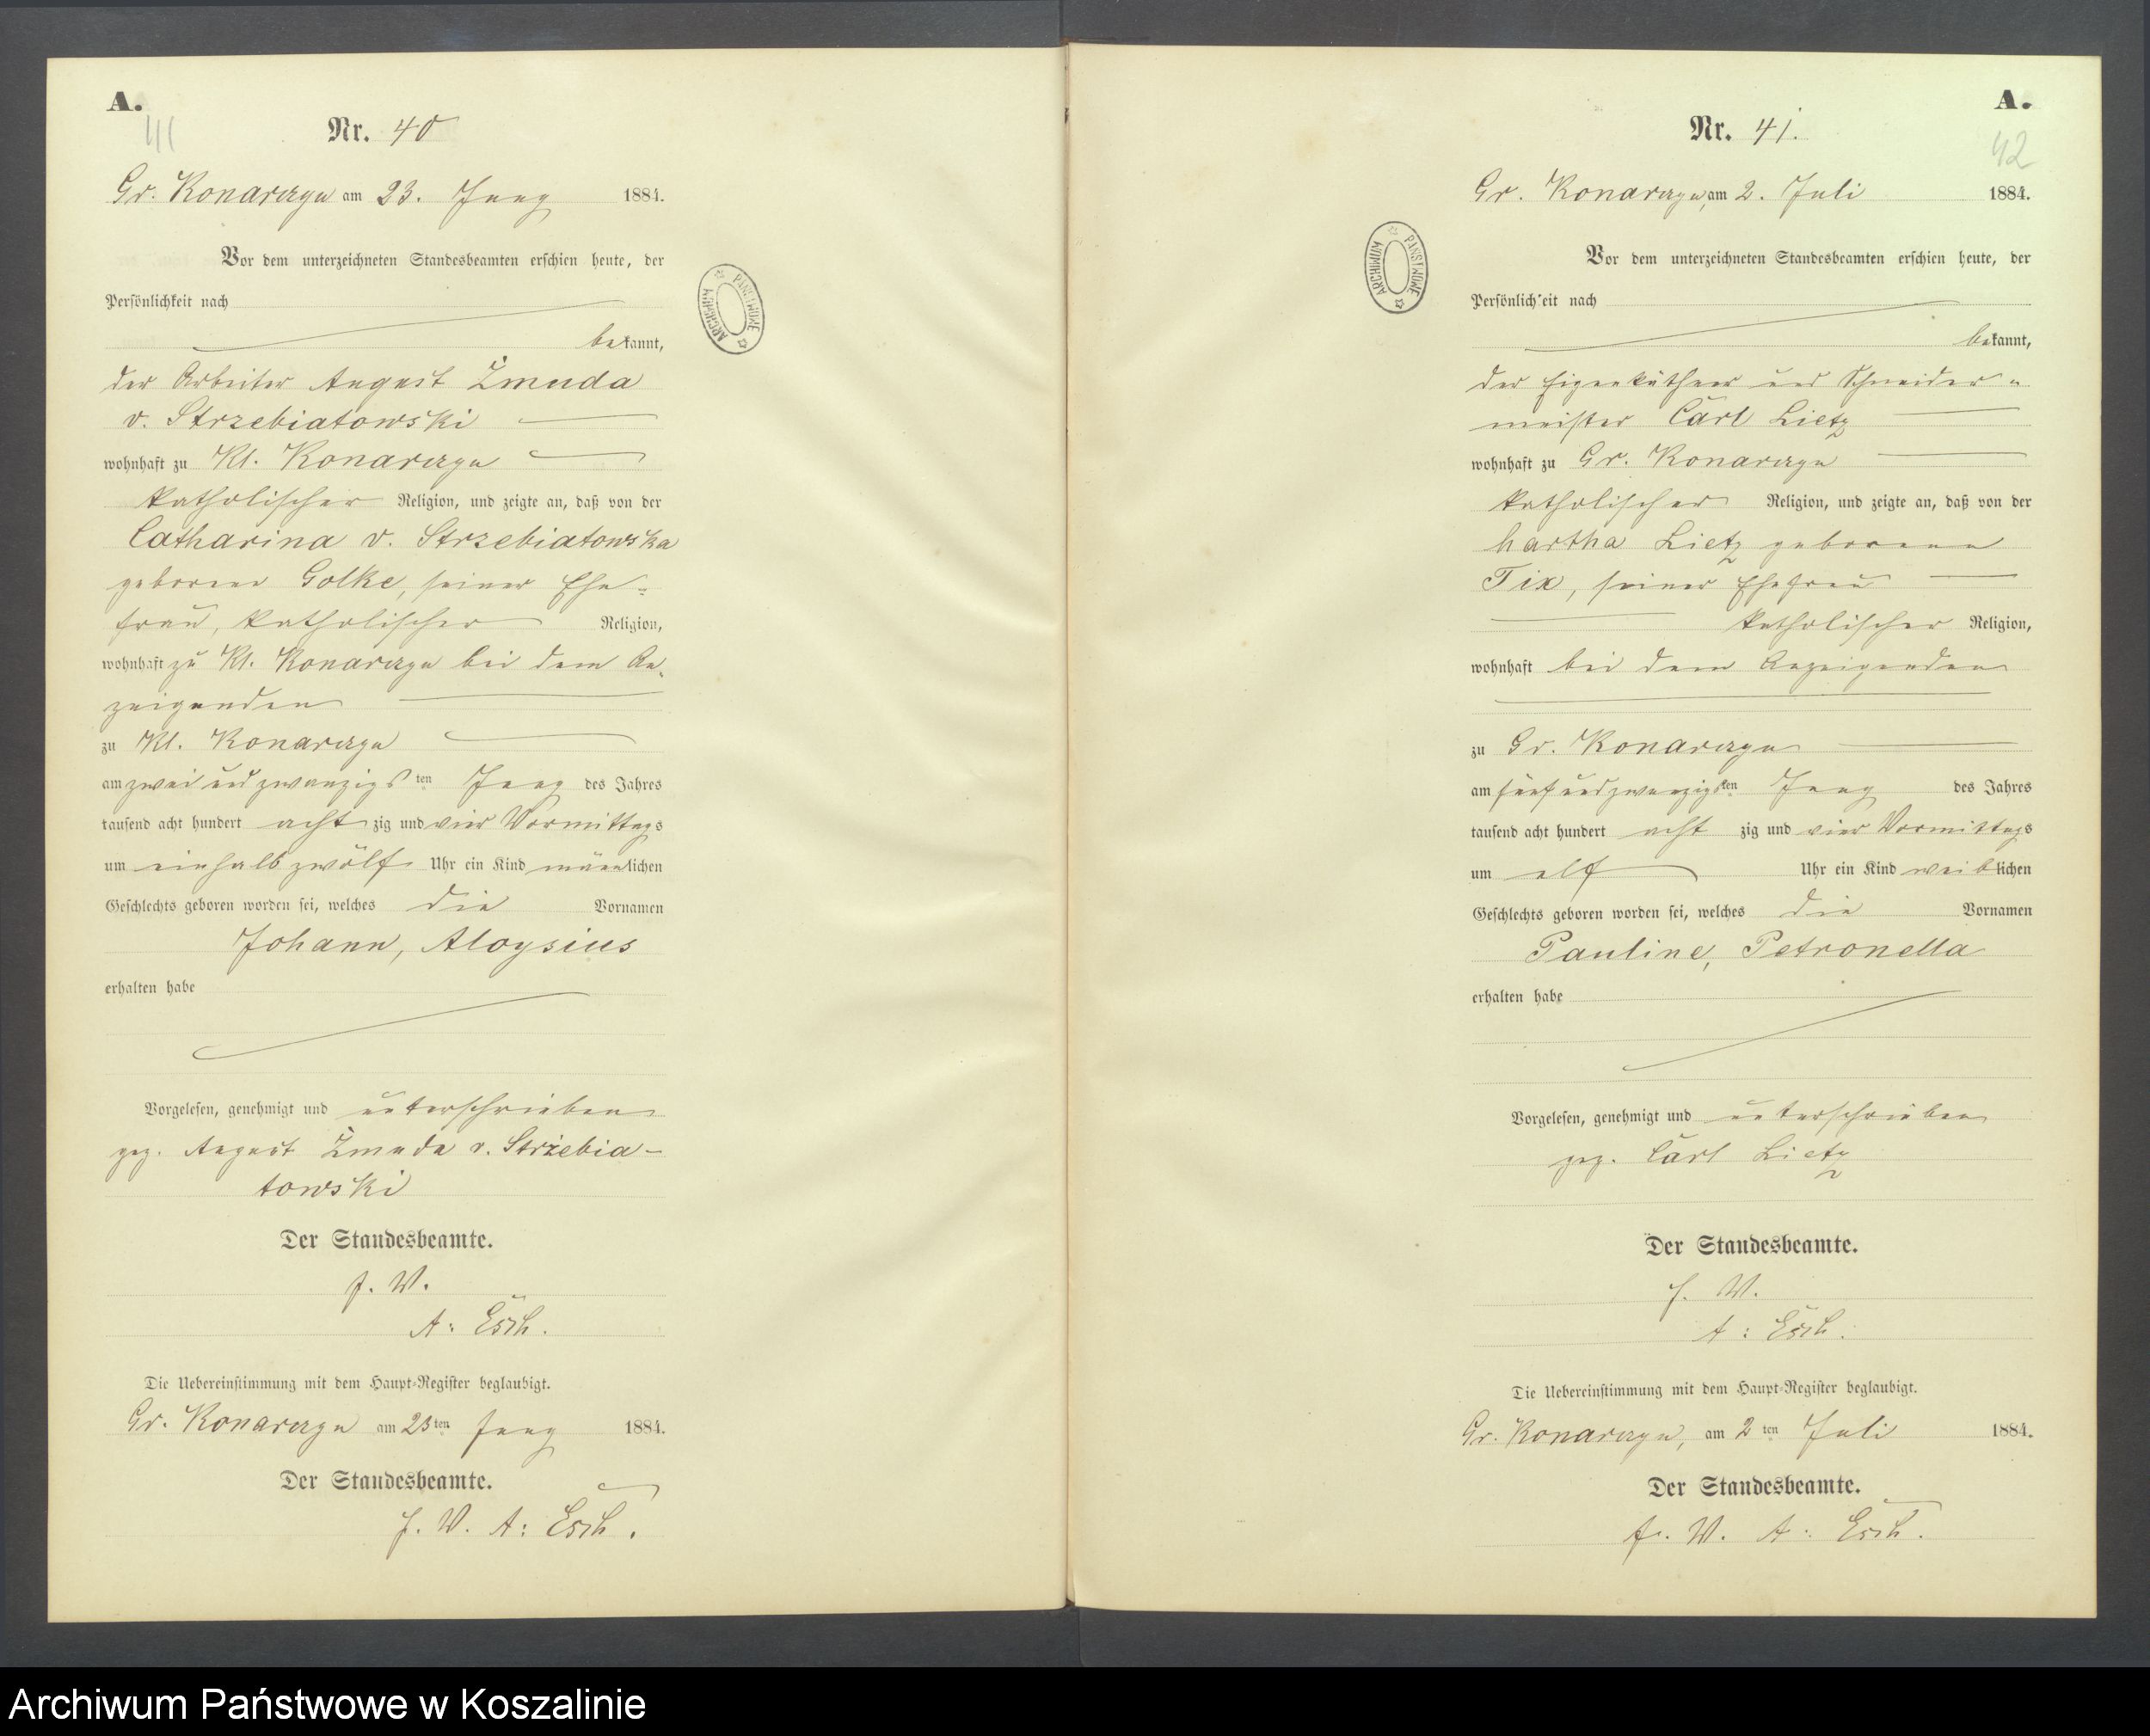 A.
41
Nr. 40
Gr. Konarczyn am 23. Juny 1884.
Vor dem unterzeichneten Standesbeamten erschien heute, der
Persönlichkeit nach
bekannt,
der Arbeiter August Żmuda
v. Strzebiatowski
wohnhaft zu Kl. Konarczyn
katholischer Religion, und zeigte an, daß von der
Catharina v. Strzebiatowska
geborene Golke, seiner Ehe-
frau, katholischer Religion,
wohnhaft zu Kl. Konarczyn bei dem An-
zeigenden
zu Kl. Konarczyn
am zwei und zwanzigsten Juny des Jahres
tausend acht hundert achtzig und vier Vormittags
um einhalb zwölf Uhr ein Kind männlichen
Geschlechts geboren worden sei, welches die Vornamen
Johann, Aloysius
erhalten habe
Vorgelesen, genehmigt und unterschrieben
gez. August Żmuda v. Strzebia-
towski
Der Standesbeamte.
J. V.
A: Esch.
Die Uebereinstimmung mit dem Haupt-Register beglaubigt.
Gr. Konarczyn am 23ten Juny 1884.
Der Standesbeamte.
J. V. A: Esch.
ARCHIWUM PAŃSTWOWE
A.
42
Nr. 41.
Gr. Konarczyn, am 2. Juli 1884.
Vor dem unterzeichneten Standesbeamten erschien heute, der
Persönlichkeit nach
bekannt,
der Eigenkäthner und Schneider-
meister Carl Lietz
wohnhaft zu Gr. Konarczyn
katholischer Religion, und zeigte an, daß von der
Martha Lietz geborene
Tix, seiner Ehefrau
katholischer Religion,
wohnhaft bei dem Anzeigenden
zu Gr. Konarczyn
am fünf und zwanzigsten Juny des Jahres
tausend acht hundert achtzig und vier Vormittags
um elf Uhr ein Kind weiblichen
Geschlechts geboren worden sei, welches die Vornamen
Pauline, Petronella
erhalten habe
Vorgelesen, genehmigt und unterschrieben
gez. Carl Lietz
Der Standesbeamte.
J. V.
A: Esch.
Die Uebereinstimmung mit dem Haupt-Register beglaubigt.
Gr. Konarczyn, am 2ten Juli 1884.
Der Standesbeamte.
J. V. A: Esch.
ARCHIWUM PAŃSTWOWE
Archiwum Państwowe w Koszalinie